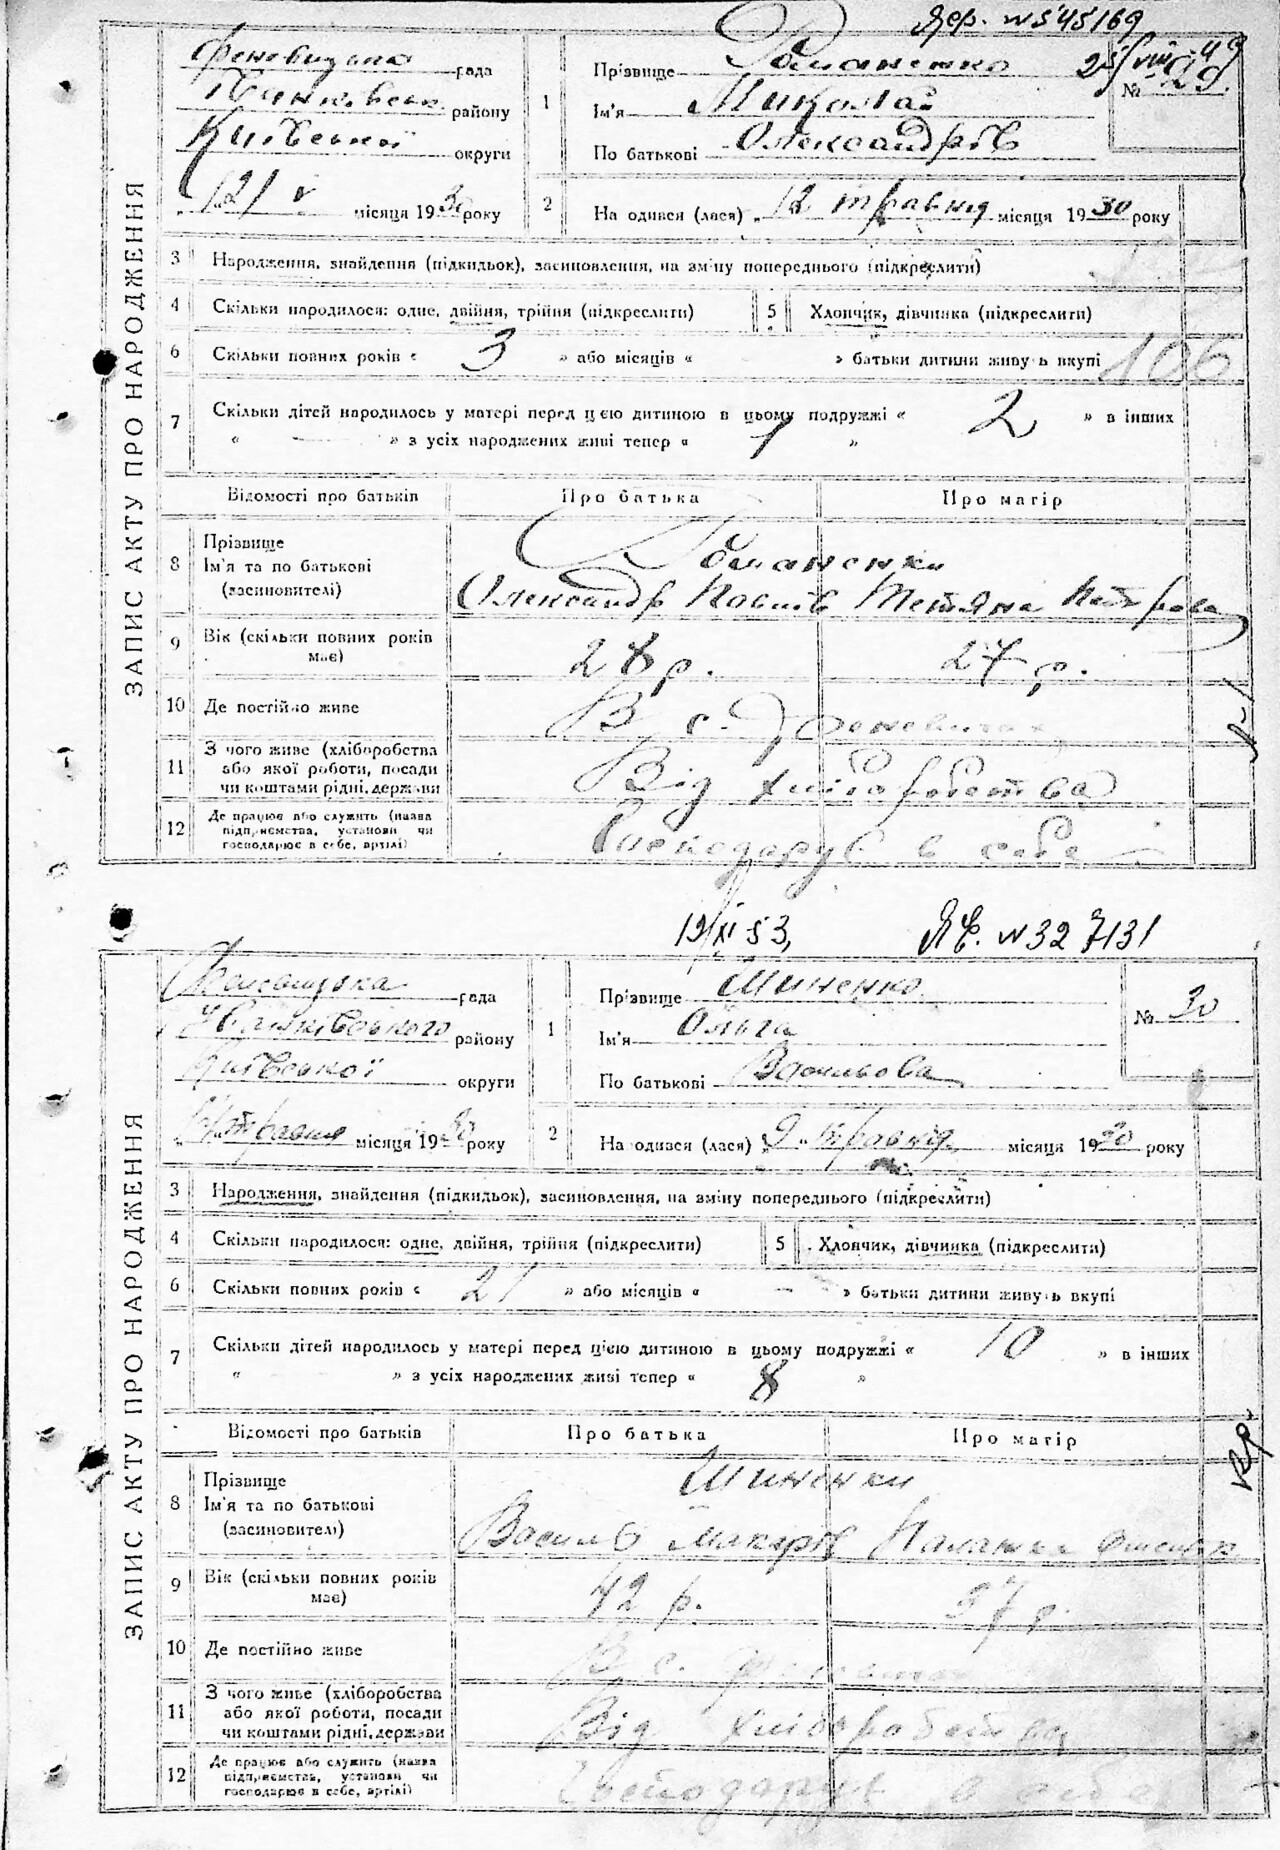 Яер. №545169
25/VIII-49
ЗАПИС АКТУ ПРО НАРОДЖЕННЯ
Феневицька рада
району
Київської округи
"12/ V місяця 1930 року
1
Прізвище Романенко
Ім'я Миколай
По батькові Олександрів
№ 29.
2
На одився (лася) „12 травня місяця 1930 року
3 Народження, знайдення (підкидьок), засиновлення, на зміну попереднього (підкреслити)
4 Скільки народилося: одне, двійня, трійня (підкреслити) 5 Хлопчик, дівчинка (підкреслити)
6 Скільки повних років « 3 » або місяців « » батьки дитини живуть вкупі 106
7 Скільки дітей народилось у матері перед цією дитиною в цьому подружжі « 2 » в інших
« — » з усіх народжених живі тепер « 1 »
Відомості про батьків Про батька Про матір
8 Прізвище
Ім'я та по батькові
(засиновителі)
Романенки
Олександр Павлів Тетяна Петрова
9 Вік (скільки повних років має) 28 р. 27 р.
10 Де постійно живе В с. Феневичах
11 З чого живе (хліборобства або якої роботи, посади чи коштами рідні, держави Від хліборобства
12 Де працює або служить (назва підприємства, установи чи господарює в себе, артілі) Господарує в себе
19/XI 53, ЯЄ. №327131
ЗАПИС АКТУ ПРО НАРОДЖЕННЯ
Феневицька рада
Іванківського району
Київської округи
травня місяця 1930 року
1
Прізвище Шиненко
Ім'я Ольга
По батькові Васильова
№ 30
2
На одився (лася) „9" травня місяця 1930 року
3 Народження, знайдення (підкидьок), засиновлення, на зміну попереднього (підкреслити)
4 Скільки народилося: одне, двійня, трійня (підкреслити) 5 Хлопчик, дівчинка (підкреслити)
6 Скільки повних років « 21 » або місяців « — » батьки дитини живуть вкупі
7 Скільки дітей народилось у матері перед цією дитиною в цьому подружжі « 10 » в інших
« » з усіх народжених живі тепер « 8 »
Відомості про батьків Про батька Про матір
8 Прізвище
Ім'я та по батькові
(засиновителі)
Шиненки
Василь Макарів Палажка
9 Вік (скільки повних років має) 42 р. 37 р.
10 Де постійно живе В с. Феневичах
11 З чого живе (хліборобства або якої роботи, посади чи коштами рідні, держави Від хліборобства
12 Де працює або служить (назва підприємства, установи чи господарює в себе, артілі) Господарує в себе